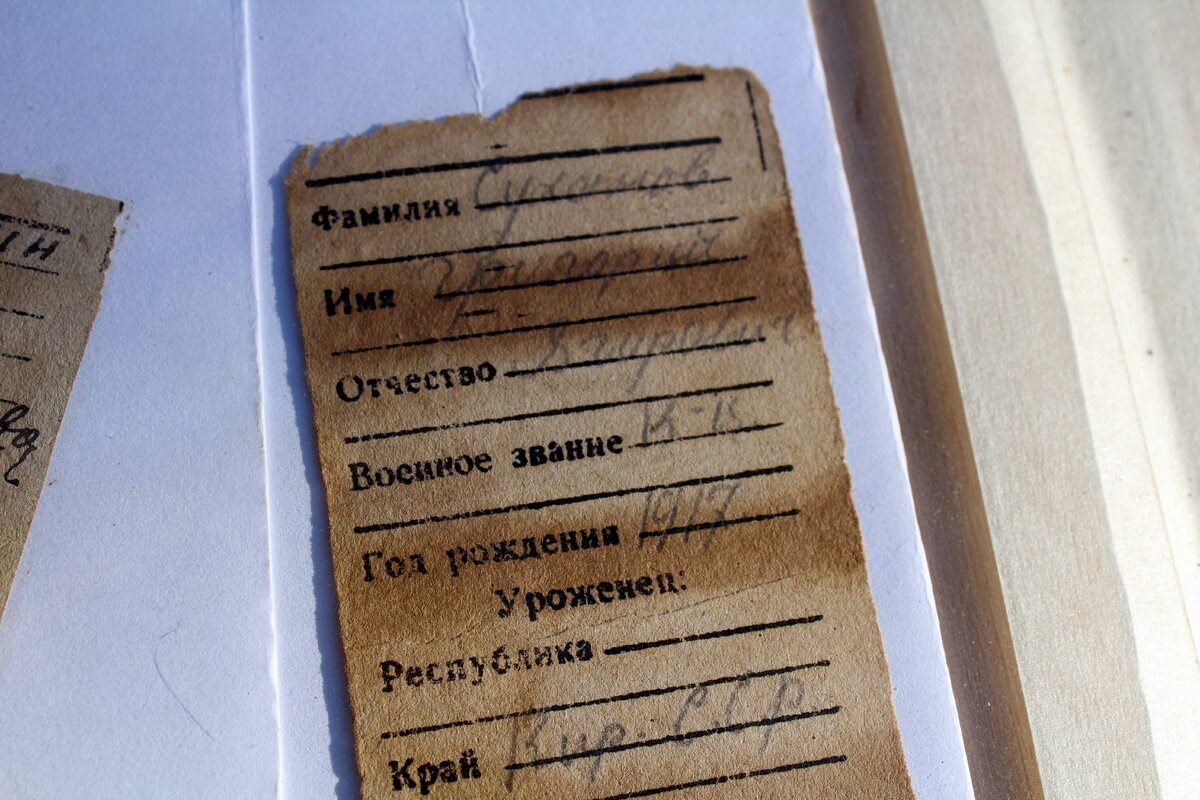 Фамилия Суханов
Имя Григорий
Отчество
Военное звание К-К
Год рождения 1917
Уроженец:
Республика
Край Кир. ССР